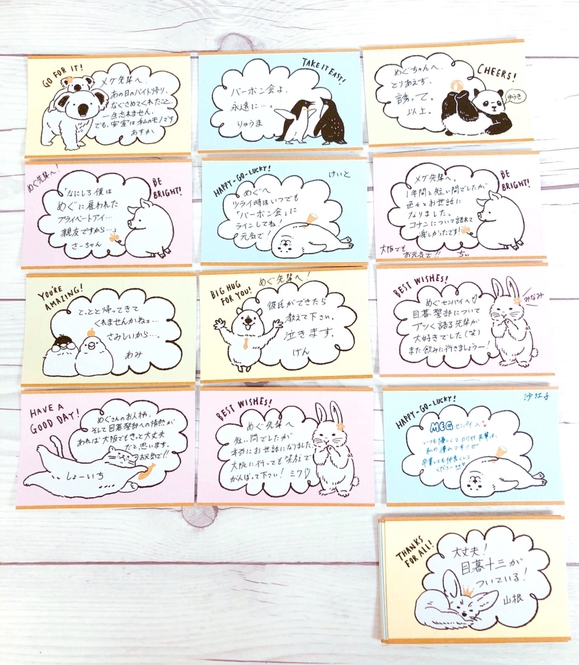 GO FOR IT!
メグ先輩へ
あの日のバイト帰り、
なぐさめてくれたこと
一生忘れません。
でも、安室は私のモノです
あすか
TAKE IT EASY!
バーボン会よ、
永遠に…。
りゅうま
CHEERS!
めぐちゃんへ
とりあえず、
誘って。
以上。
ゆうき
めぐ先輩へ!
BE
BRIGHT!
「なにしろ僕は
めぐに雇われた
プライベートアイ…
親友ですから…」
さーちゃん
HAPPY-GO-LUCKY!
けいと
めぐへ
ツライ時はいつでも
「バーボン会」に
ラインしてね!
元気で!
BE
BRIGHT!
メグ先輩へ、
1年間と短い間でしたが
色々お世話に
なりました。
コナンについて語れて
楽しかったです!
大阪でも
お元気で!!
YOU'RE
AMAZING!
とっとと帰ってきて
くれませんかねぇ…
さみしいから…。
わみ
BIG HUG
FOR YOU!
めぐ先輩へ!
彼氏ができたら
教えて下さい。
泣きます。
げん
BEST WISHES!
みなみ
めぐセンパイへ♡
目暮警部について
アツく語る先輩が
大好きでした(笑)
また飲みに行きましょうー!
HAVE A
GOOD DAY!
めぐさんのお人柄、
そして目暮警部への情熱が
あれば大阪でもきっと大丈夫
だと思います。
お幸せで!!
しょーいち
BEST WISHES!
めぐ先輩へ
短い間でしたが
本当にお世話になりました
大阪に行っても笑顔で
がんばって下さい! ミク♡
HAPPY-GO-LUCKY!
沙都子
MEGセンパイへ
THANKS
FOR ALL!
大丈夫!
目暮十三が
ついている!
山根